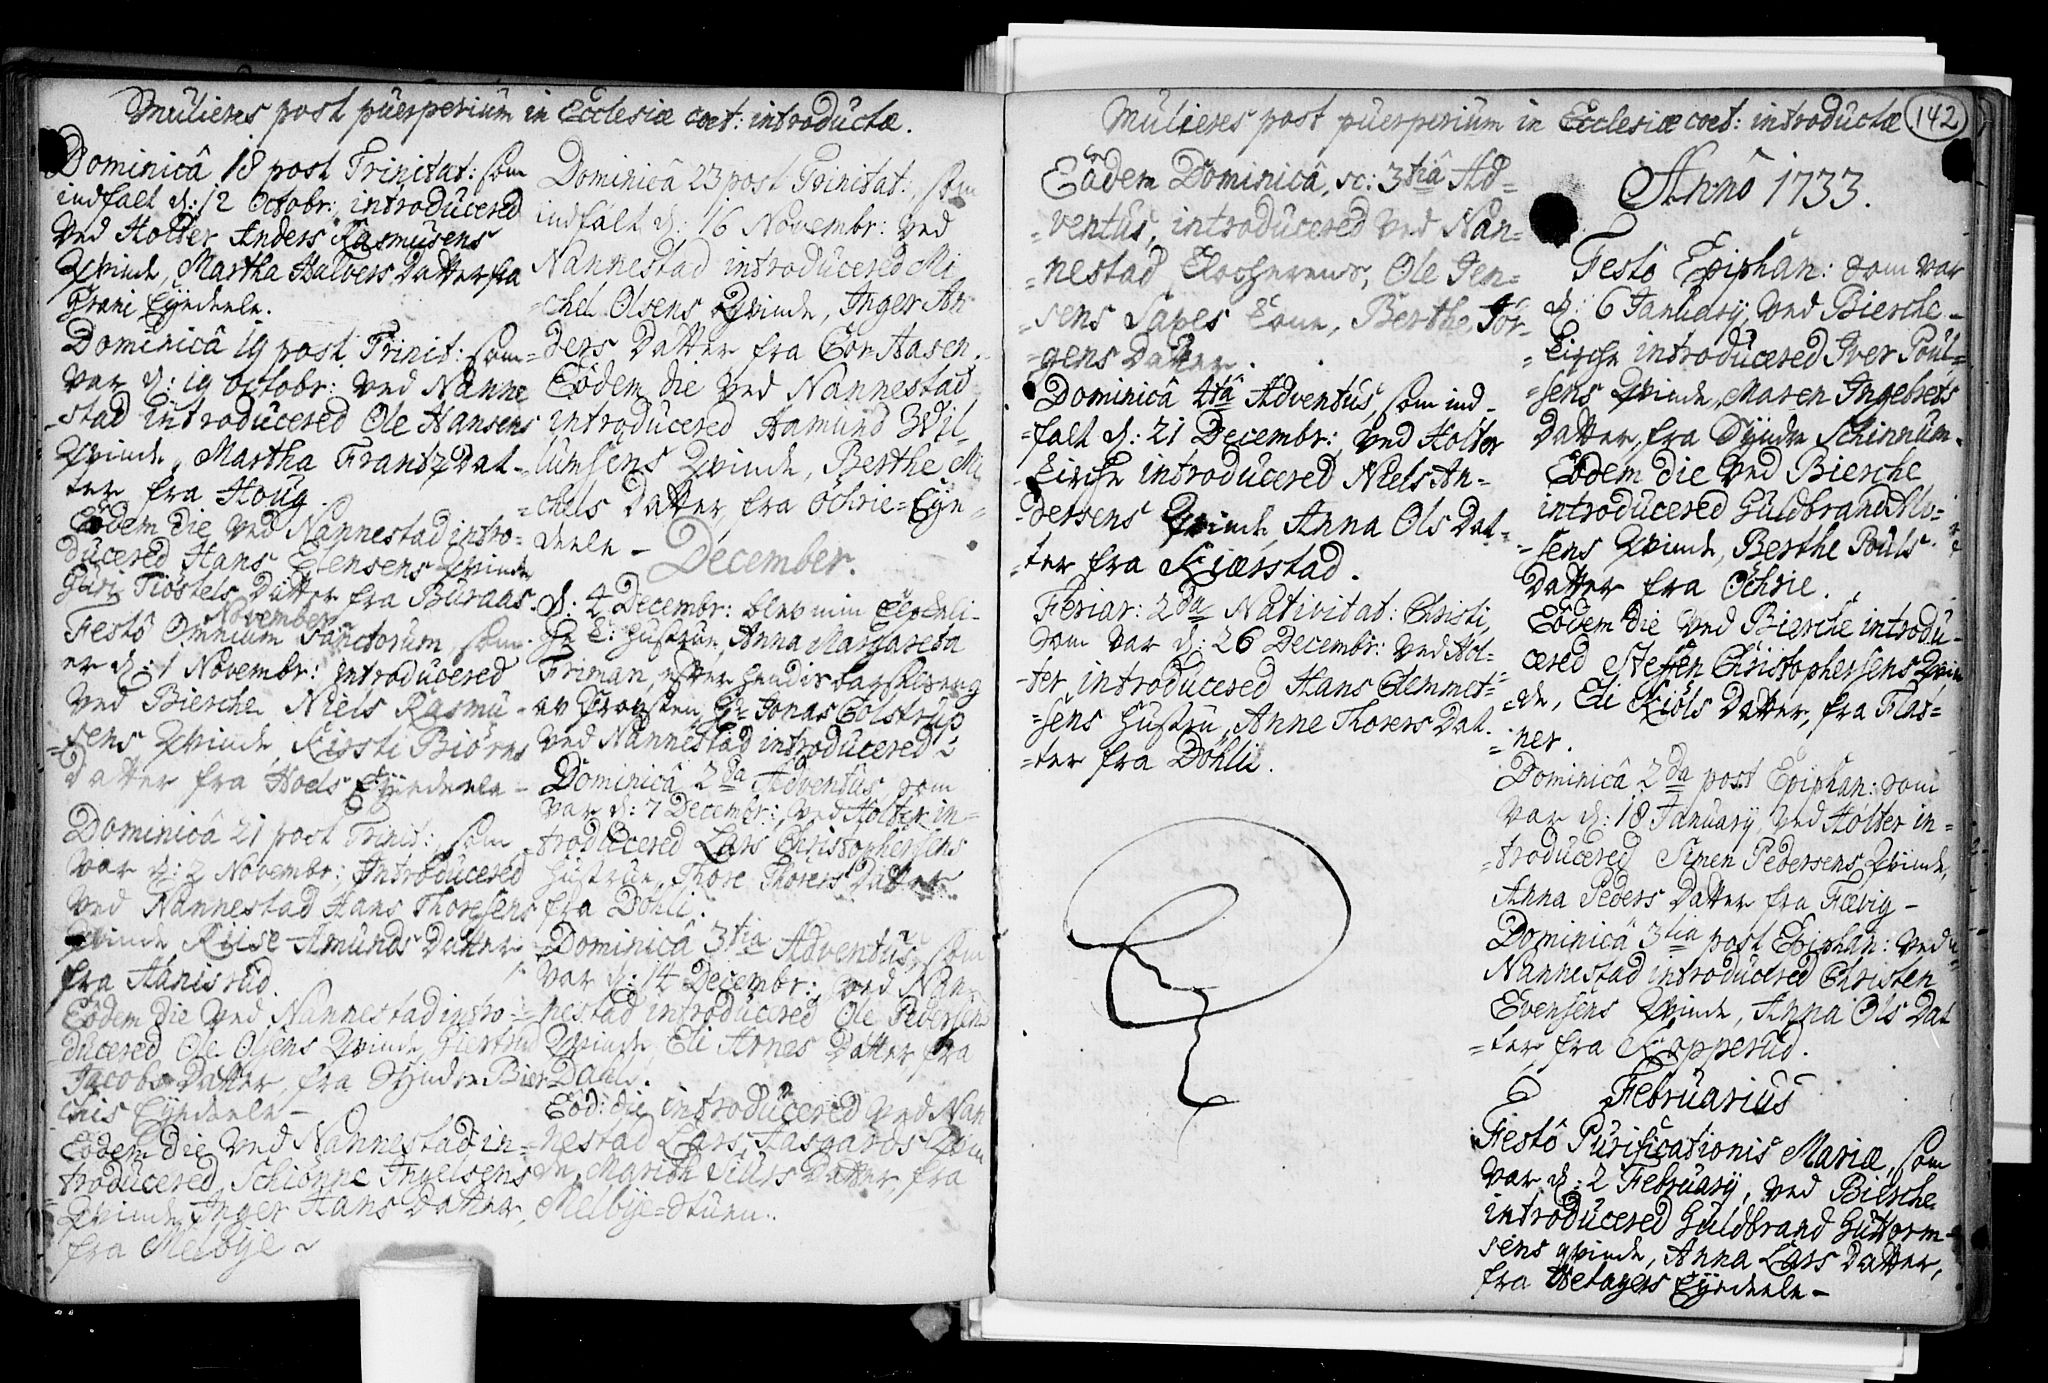 Mulieres post puerperium in Ecclesiæ coet: introductæ.
Dominicâ 18 post Trinitat: som
indfalt d: 12 Octobr: introducered
ved Holter Anders Rasmusens
Qvinde, Martha Halvers Datter fra
Eyedeele.
Dominicâ 19 post Trinit: som
var d: 19 octobr: ved Nanne
stad introducered Ole Hansens
Qvinde, Martha Frantz Dat-
ter fra Houg.
Eôdem die ved Nannestad intro-
ducered Hans Qvinde
Tiøstels Datter fra Buraas
November
Festô Omnium Sanctorum, som
er d: 1 Novembr: introducered
ved Bierche Niels Rasmu-
=sens Qvinde, Kirsti Biørns
Datter fra Hoels Eyedeele-
Dominicâ 21 post Trinit: som
var d: 2 Novembr; Introducered
ved Nannestad Hans Thoresens
Qvinde Amunds Datter
fra Aanisrud.
Eôdem die ved Nannestad intro-
ducered Ole Olsens Qvinde,
Jacobs Datter, fra Syndre Bier-
chis Eyedeele-
Eôdem die ved Nannestad in-
troducered, Schiønne Ingelsens
Qvinde Inger Hans Datter,
fra Melbye
Dominicâ 23 post Trinitat:, som
indfalt d: 16 Novembr: ved
Nannestad introducered Mi
=chel Olsens Qvinde, Inger An
ders Datter fra Cor Aasen.
Eôdem die ved Nannestad
introducered Aamund Wil-
lumsens Qvinde, Berthe Mi
chels Datter, fra Ochrie=Eye=
deele-
December.
d: 4 Decembr: blev min
Hustrue, Anna Margareta
Friman, efter hendis barselseng
av Provsten Hr Jonas Colstrup
ved Nannestad introducered
Dominicâ 2da Adventus, som
var d: 7 Decembr:, ved Holter in=
=troducered Lars Christophersens
Hustrue, Thore Thorers Datter
fra Døhli.
Dominicâ 3tia Adventus, som
var d: 14 Decembr:, ved Nan-
nestad introducered Ole Pedersens
Qvinde, Eli Arnes Datter fra
Dahl.
Eôd: die introducered ved Nan
nestad Lars Aasgaards
Marith Siurs Datter, fra
Melbye=Stuen.
Mulieres post puerperium in Ecclesiæ coet: introductæ
142
Eâdem Dominicâ, sc: 3tiâ Ad=
=ventus, introducered ved Nan=
=nestad Clocherens, Ole Jen=
=sens Sapes Kone, Berthe Jør-
=gens Datter.
Dominicâ 4tâ Adventus, som ind-
=falt d: 21 Decembr:, ved Holter
Kirche introducered Niels An-
=dersens Qvinde, Anna Ols Dat-
=ter fra Kiærstad.
Feriar: 2da Nativitat: Christi,
som var d: 26 Decembr: ved Hol=
=ter, introducered Hans Clemmet=
=sens Hustru, Anne Thorers Dat.
=ter fra Døhli.
Annô 1733.
Festô Epiphan: som var
d: 6 January, ved Bierche-
=Kirche introducered Iver Poul=
=sens Qvinde, Maren Ingebrets
Datter, fra Syndre Schinnum.
Eôdem die ved Bierche
introducered Guldbrand Nil=
=sens Qvinde, Berthe Pouls
Datter fra Ochrie.
Eôdem die ved Bierche introdu-
cered Steffen Christophersens Qvin
=de, Eli Kiøls Datter, fra Flas=
=ner.
Dominicâ 2da post Epiphan: som
var d: 18 January ved Holter in=
=troducered Simen Pedersens Qvinde,
Anna Peders Datter fra Fævig-
Dominicâ 3tia post Epiphan: ved
Nannestad introducered Christen
Evensens Qvinde, Anna Ols Dat
=ter fra Kopperud.
Februarius
Festô Purificationis Mariæ, som
var d: 2 February, ved Bierche
introducered Guldbrand Guttorm-
sens qvinde, Anna Lars Datter,
fra Hetagers Eyedeele-